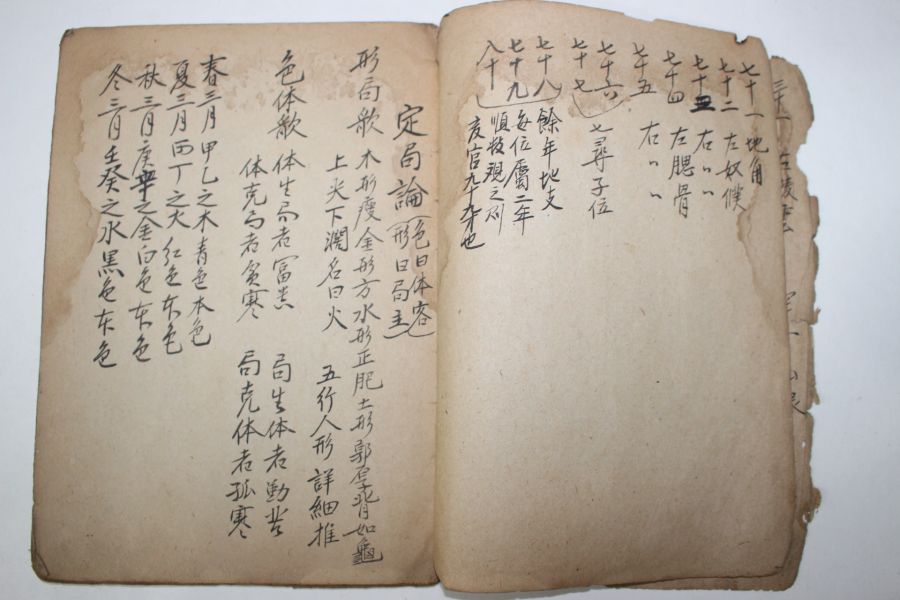 七十一 地角
七十二 左奴僕
七十三 右〃〃
七十四 左腮骨
七十五 右〃〃
七十六
七十七 七尋子位
七十八 餘年地支
七十九 每位屬二年
八十 順數
亥宮九十九也
定局論 色曰体客 形曰局主
形局歌 木形瘦金形方水形正肥土形郭厚背如龜
上尖下濶名曰火 五行人形詳細推
色体歌 体生局者冨貴 局生体者勤苦
体克局者貧寒 局克体者孤寒
春三月甲乙之木青色本色
夏三月丙丁之火紅色本色
秋三月庚辛之金白色本色
冬三月壬癸之水黑色本色